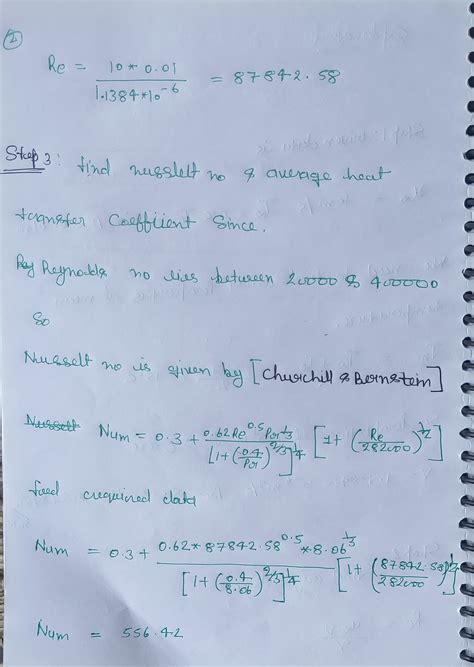 2
Re = 10*0.01 / 1.1384*10^-6 = 87842.58
Step 3: find nusslelt no & average heat
transfer Coefficient Since.
Reynolds no lies between 20000 & 400000
so
Nusselt no is given by [Churchill & Bernstein]
Num = 0.3 + 0.62Re^0.5 Por^1/3 / [1+(0.4/Por)^2/3]^1/4 [1+(Re/282000)^1/2]
feed required data
Num = 0.3 + 0.62*87842.58^0.5*8.06^1/3 / [1+(0.4/8.06)^2/3]^1/4 [1+(87842.58/282000)^1/2]
Num = 556.42